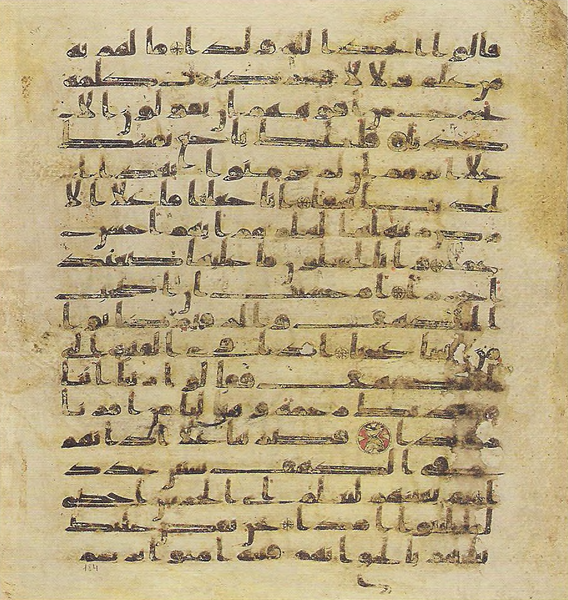 قالوا اتخذ الله ولدا ما لهم به
من علم ولا لابائهم كبرت كلمة
تخرج من افوههم ان يقولون الا
كذبا فلعلك باخع نفسك
على اثرهم ان لم يومنوا بهذا ا
لحديث اسفا انا جعلنا ما على الا
رض زينة لها لنبلوهم ايهم احسن
عملا وانا لجعلون ما عليها صعيدا
جرزا ام حسبت ان اصحب
الكهف والرقيم كانوا
من ايتنا عجبا اذ اوى الفتية الى
الكهف فقالوا ربنا اتنا
من لدنك رحمة وهيى لنا من امرنا
رشدا فضربنا على اذانهم
في الكهف سنين عددا
ثم بعثنهم لنعلم اي الحزبين احصى
لما لبثوا امدا نحن نقص عليك
نباهم بالحق انهم فتية امنوا بربهم